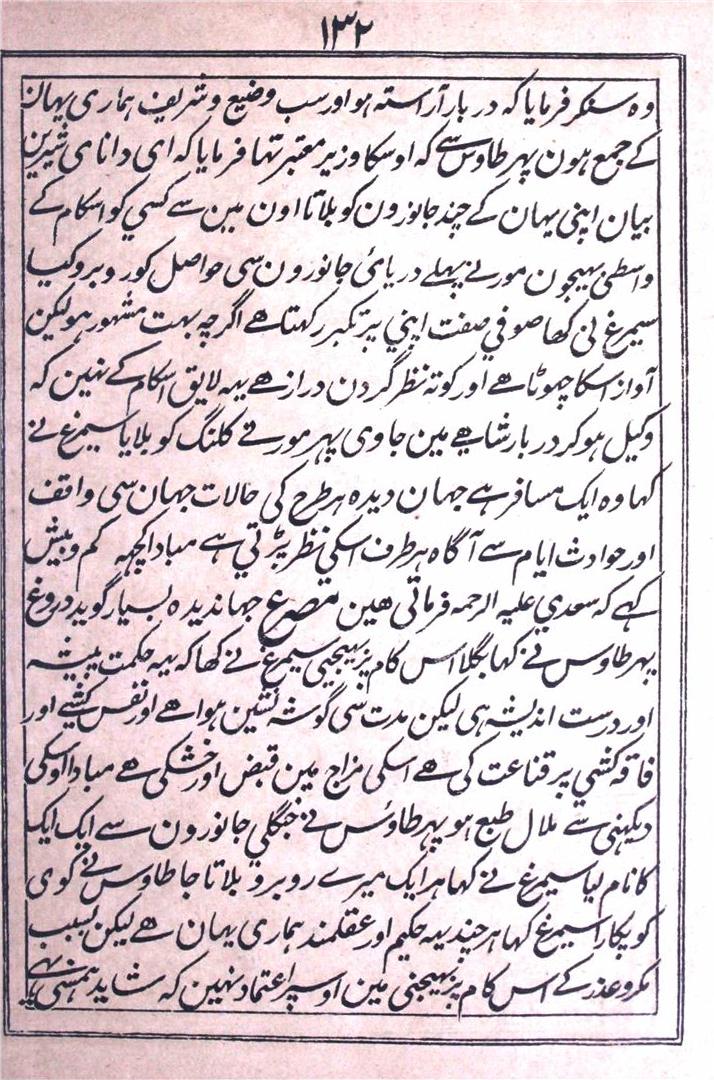 ١٣٢
وہ سنکر فرمایا کہ دربار آراستہ ہو اور سب وضیع و شریف ہماری یہان
کے جمع ہون پہر طاوس سے کہ اوسکا وزیر معتبر تہا فرمایا کہ ای دانای شیرین
بیان اپنی یہان کے چند جانورون کو بلاتا اون مین سے کسي کو اسکام کے
واسطی بہیجون مورنے پہلے دریائ جانورون سی حواصل کو روبرو کیا
سیمرغ نی کہا صوفي صفت اپني پر تکبر رکہتا ھے اگرچہ بہت مشہور ہو لیکن
آواز اسکا چہوٹا ھے اور کوتہ نظر گردن دراز ھے یہہ لایق اسکام کے نہین کہ
وکیل ہو کر دربار شاھے مین جاوی پہر مورنے کلنگ کو بلایا سیمرغ نے
کہا وہ ایک مسافر ہے جہان دیدہ ہر طرح کی حالات جہان سی واقف
اور حوادث ایام سے آگاہ ہر طرف اسکي نظر پڑتي ہے مبادا کچہہ کم و بیش
کہے کہ سعدي علیہ الرحمہ فرماتی ھین مصرع جہاندیدہ بسیار گوید دروغ
پہر طاوس نے کہا بگلا اس کام پر بہیجیی سیمرغ نے کہا کہ یہہ حکمت پیشہ
اور درست اندیشہ ہی لیکن مدت سی گوشہ نشین ہوا ھے اور نفس کشیے اور
فاقہ کشي پر قناعت کی ھے اسکی مزاج مین قبض اور خشکی ھے مبادا اوسکی
دیکہنی سے ملال طبع ہو پہر طاؤس نے جنگلي جانورون سے ایک ایک
کا نام لیا سیمرغ نے کہا ہر ایک میرے روبرو بلاتا جا طاوس نے کوی
کو پکارا سیمرغ کہا ہر چند یہہ حکیم اور عقلمند ہماری یہان ھے لیکن بسبب
مکر و عذر کے اس کام پر بہیجنی مین اوسپر اعتماد نہین کہ شاید ہمسنی